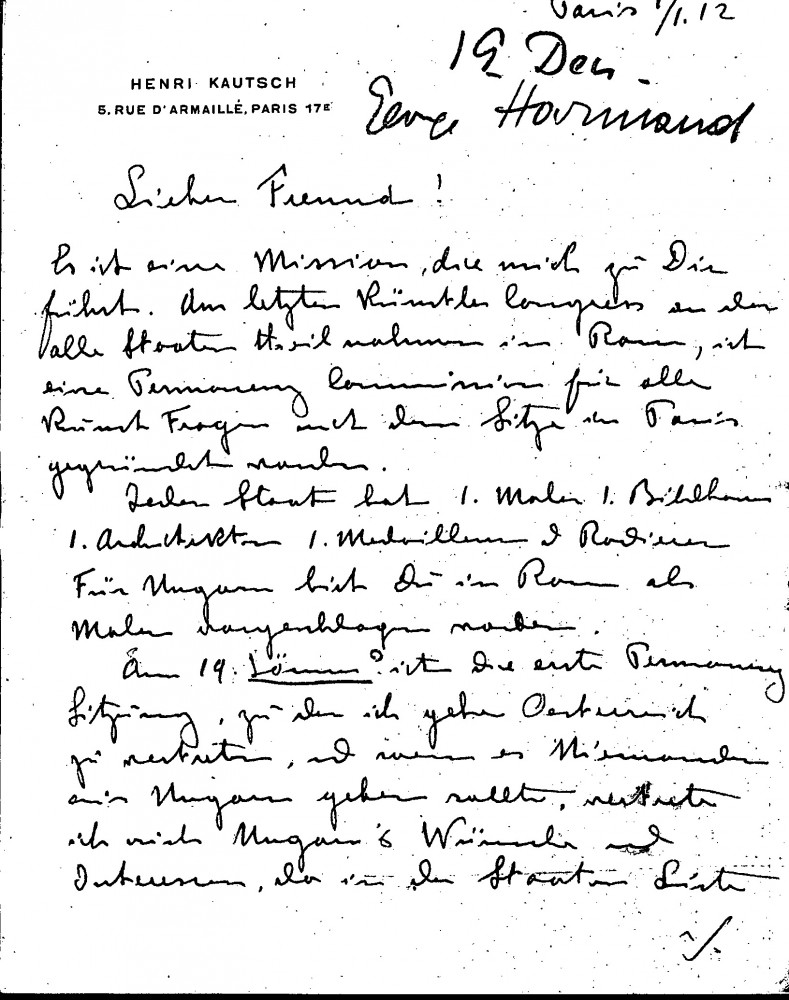 Paris 1/1.12
19 Dez.
HENRI KAUTSCH
5. RUE D'ARMAILLÉ, PARIS 17E
George Harmand
Lieber Freund!
Es ist eine Mission, die mich zu Dir
führt. Am letzten Künstler Congress an dem
alle Staaten theilnahmen in Rom, ist
eine Permanenz Commission für alle
Kunst Fragen mit dem Sitze in Paris
gegründet worden.
Jeder Staat hat 1. Maler 1. Bildhauer
1. Architekten 1. Medailleur & Radierer
Für Ungarn bist Du in Rom als
Maler vorgeschlagen worden.
Am 19. ist die erste Permanenz
Sitzung, zu der ich gehe Oesterreich
zu vertreten, und wenn es Niemanden
aus Ungarn geben sollte, vertrete
ich auch Ungarn's Wünsche und
Interessen, da in der Staaten Liste
./.